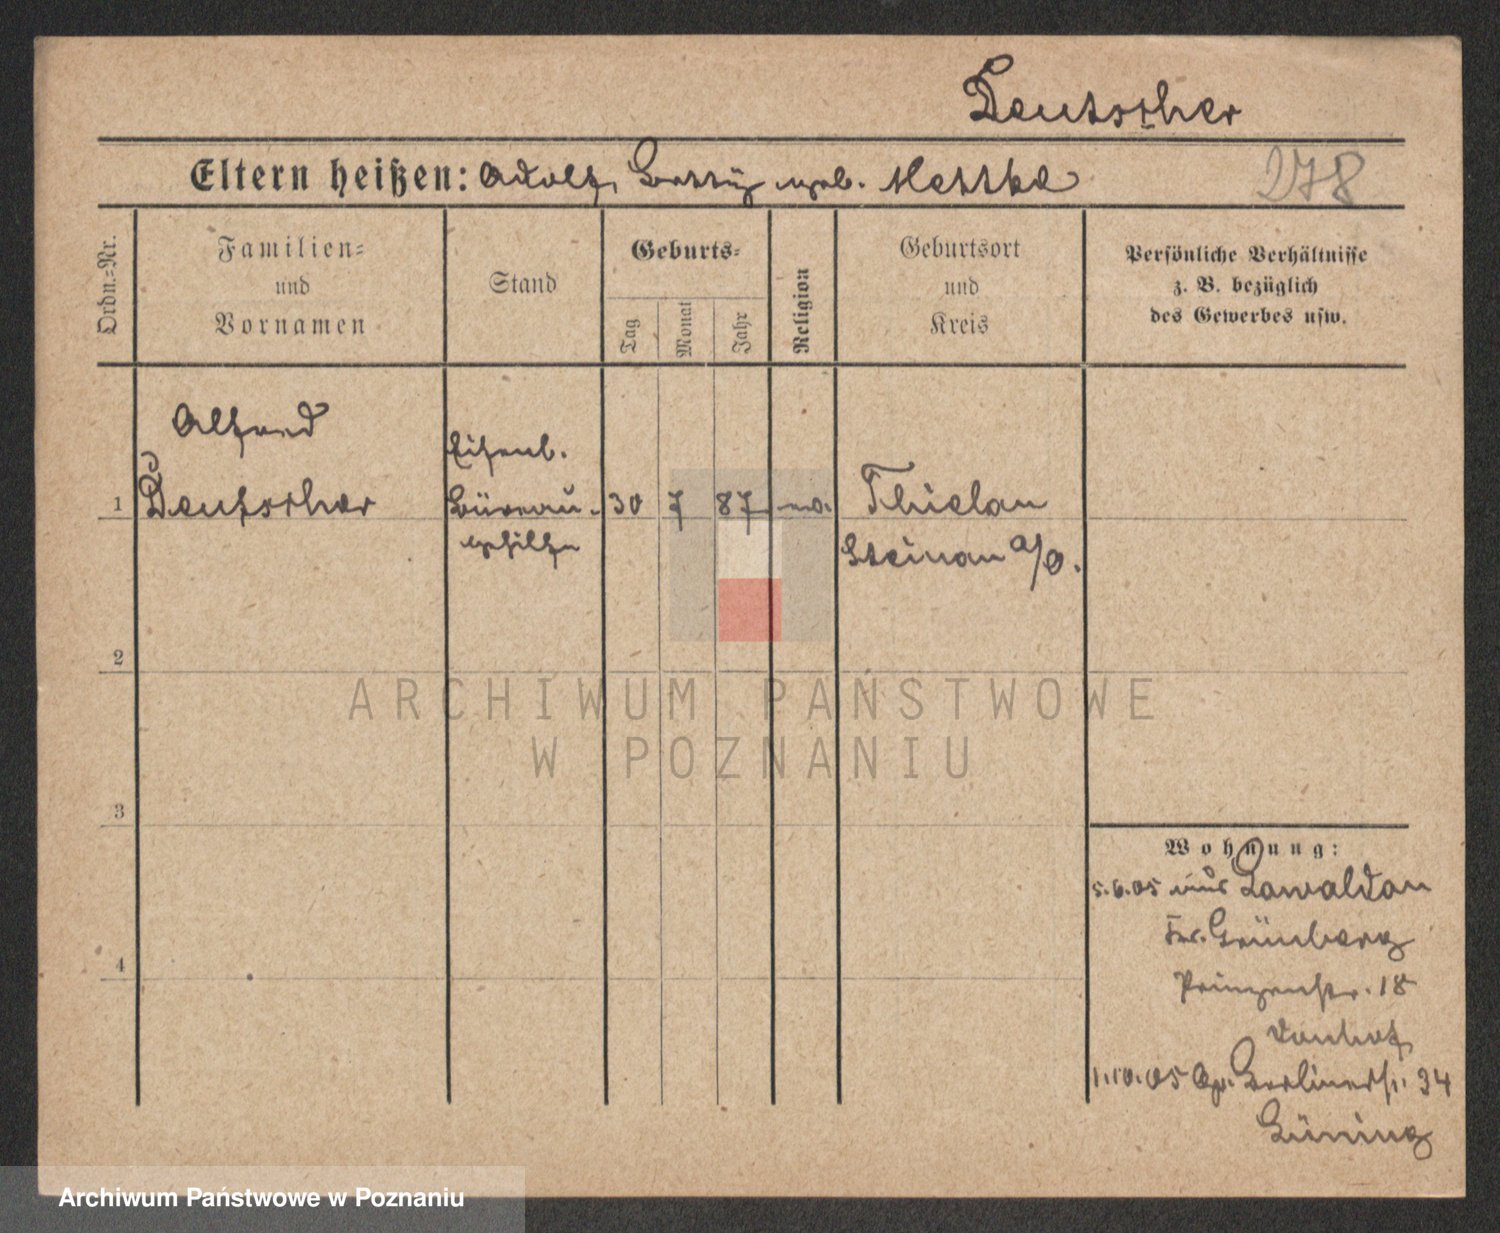 Deutscher
Eltern heißen: Adolf, geb.
278
Ordn.=Nr.
Familien=
und
Vornamen
Stand
Geburts=
Tag
Monat
Jahr
Religion
Geburtsort
und
Kreis
Persönliche Verhältnisse
z. B. bezüglich
des Gewerbes usw.
Alfred
1 Deutscher
Eisenb.
Büreau-
gehilfe
30 7 87 ev.
Thielau
Steinau a/O.
2
ARCHIWUM PAŃSTWOWE
W POZNANIU
3
Wohnung:
5.6.05 aus Lawaldau
Kr. Grünberg
Prinzenstr. 18
1.10.05 Berlinerstr. 34
4
Archiwum Państwowe w Poznaniu